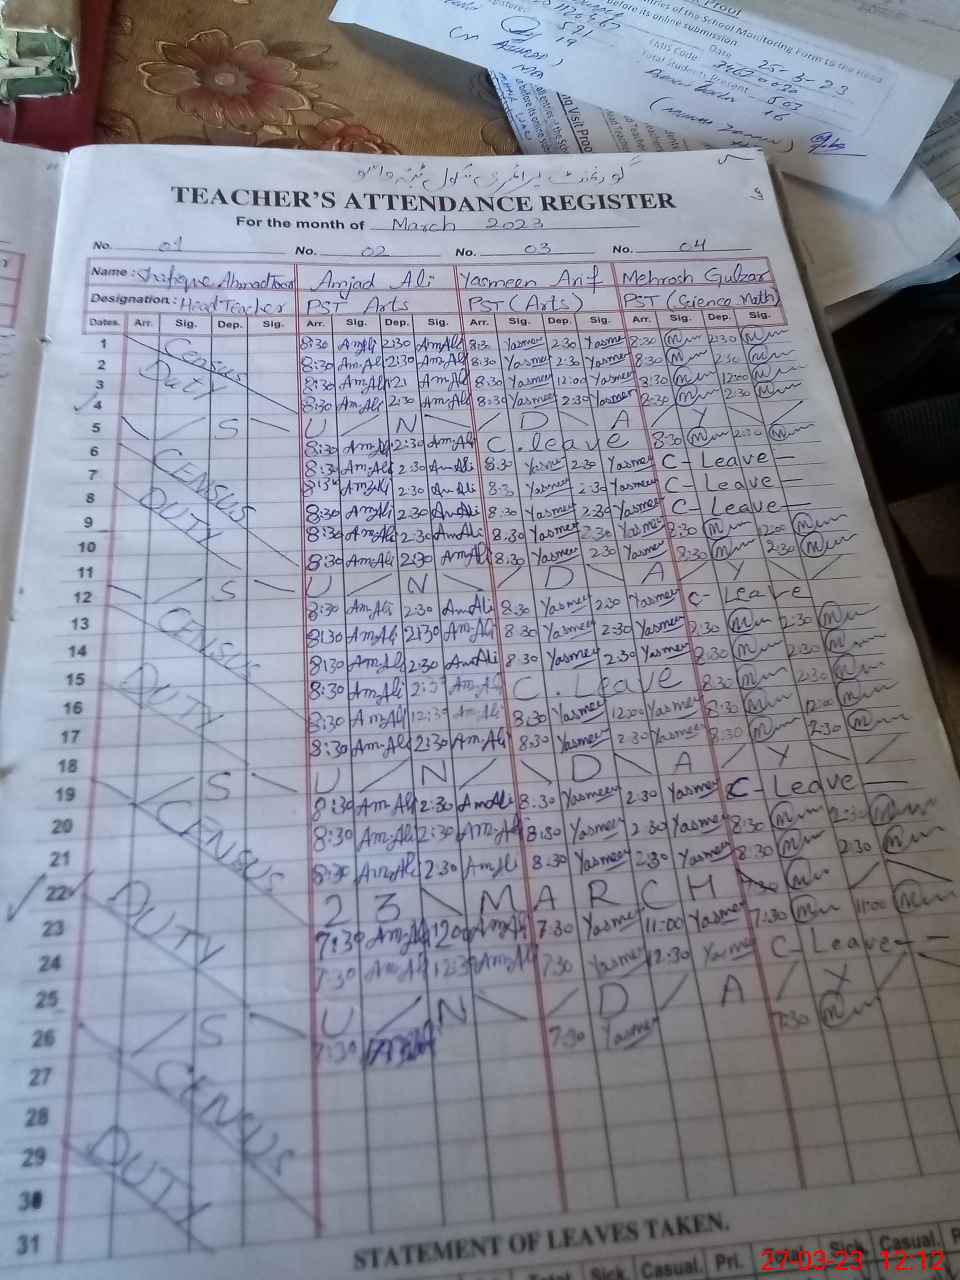 Proof
entries of the School Monitoring Form to the Head
before its online submission
Date 25-3-23
EMIS Code :
Total Students present 503
16
Visit Proof
گورنمنٹ پرائمری سکول
TEACHER'S ATTENDANCE REGISTER
For the month of March 2023
No. 01 No. 02 No. 03 No. 04
Name : Shafique Ahmad Amjad Ali Yasmeen Arif Mehrosh Gulzar
Designation : Head Teacher PST Arts PST (Arts) PST (Science Math)
Dates. Arr. Sig. Dep. Sig. Arr. Sig. Dep. Sig. Arr. Sig. Dep. Sig. Arr. Sig. Dep. Sig.
1 Census 8:30 Am.Ali 2:30 Am.Ali 8:30 Yasmeen 2:30 Yasmeen 8:30 2:30
2 Duty 8:30 Am.Ali 2:30 Am.Ali 8:30 Yasmeen 2:30 Yasmeen 8:30 2:30
3 8:30 Am.Ali Am.Ali 8:30 Yasmeen 12:00 Yasmeen 8:30 12:00
4 8:30 Am.Ali 2:30 Am.Ali 8:30 Yasmeen 2:30 Yasmeen 8:30 2:30
5 S U N D A Y
6 CENSUS 8:30 Am.Ali 2:30 Am.Ali C. leave 8:30 2:30
7 8:30 Am.Ali 2:30 Am.Ali 8:30 Yasmeen 2:30 Yasmeen C- Leave -
8 DUTY 8:30 Am.Ali 2:30 Am.Ali 8:30 Yasmeen 2:30 Yasmeen C- Leave -
9 8:30 Am.Ali 2:30 Am.Ali 8:30 Yasmeen 2:30 Yasmeen C- Leave -
10 8:30 Am.Ali 2:30 Am.Ali 8:30 Yasmeen 2:30 Yasmeen 8:30 12:00
11 8:30 Am.Ali 2:30 Am.Ali 8:30 Yasmeen 2:30 Yasmeen 8:30 2:30
12 S U N D A Y
13 CENSUS 8:30 Am.Ali 2:30 Am.Ali 8:30 Yasmeen 2:30 Yasmeen C- Leave
14 8:30 Am.Ali 2:30 Am.Ali 8:30 Yasmeen 2:30 Yasmeen 8:30 2:30
15 DUTY 8:30 Am.Ali 2:30 Am.Ali 8:30 Yasmeen 2:30 Yasmeen 8:30 2:30
16 8:30 Am.Ali 2:30 Am.Ali C. Leave 8:30 2:30
17 8:30 Am.Ali 12:30 Am.Ali 8:30 Yasmeen 12:00 Yasmeen 8:30 12:00
18 8:30 Am.Ali 2:30 Am.Ali 8:30 Yasmeen 2:30 Yasmeen 8:30 2:30
19 S U N D A Y
20 CENSUS 8:30 Am.Ali 2:30 Am.Ali 8:30 Yasmeen 2:30 Yasmeen C- Leave -
21 8:30 Am.Ali 2:30 Am.Ali 8:30 Yasmeen 2:30 Yasmeen 8:30 2:30
22 DUTY 8:30 Am.Ali 2:30 Am.Ali 8:30 Yasmeen 2:30 Yasmeen 8:30 2:30
23 23 MARCH
24 7:30 Am.Ali Am.Ali 7:30 Yasmeen 11:00 Yasmeen 7:30 11:00
25 7:30 Am.Ali 12:30 Am.Ali 7:30 Yasmeen 12:30 Yasmeen C- Leave -
26 S U N D A Y
27 CENSUS 7:30 7:30 Yasmeen 7:30
28
29 DUTY
30
31
STATEMENT OF LEAVES TAKEN.
Total Sick Casual. Pri. Total. Sick Casual.
27-03-23 12:12